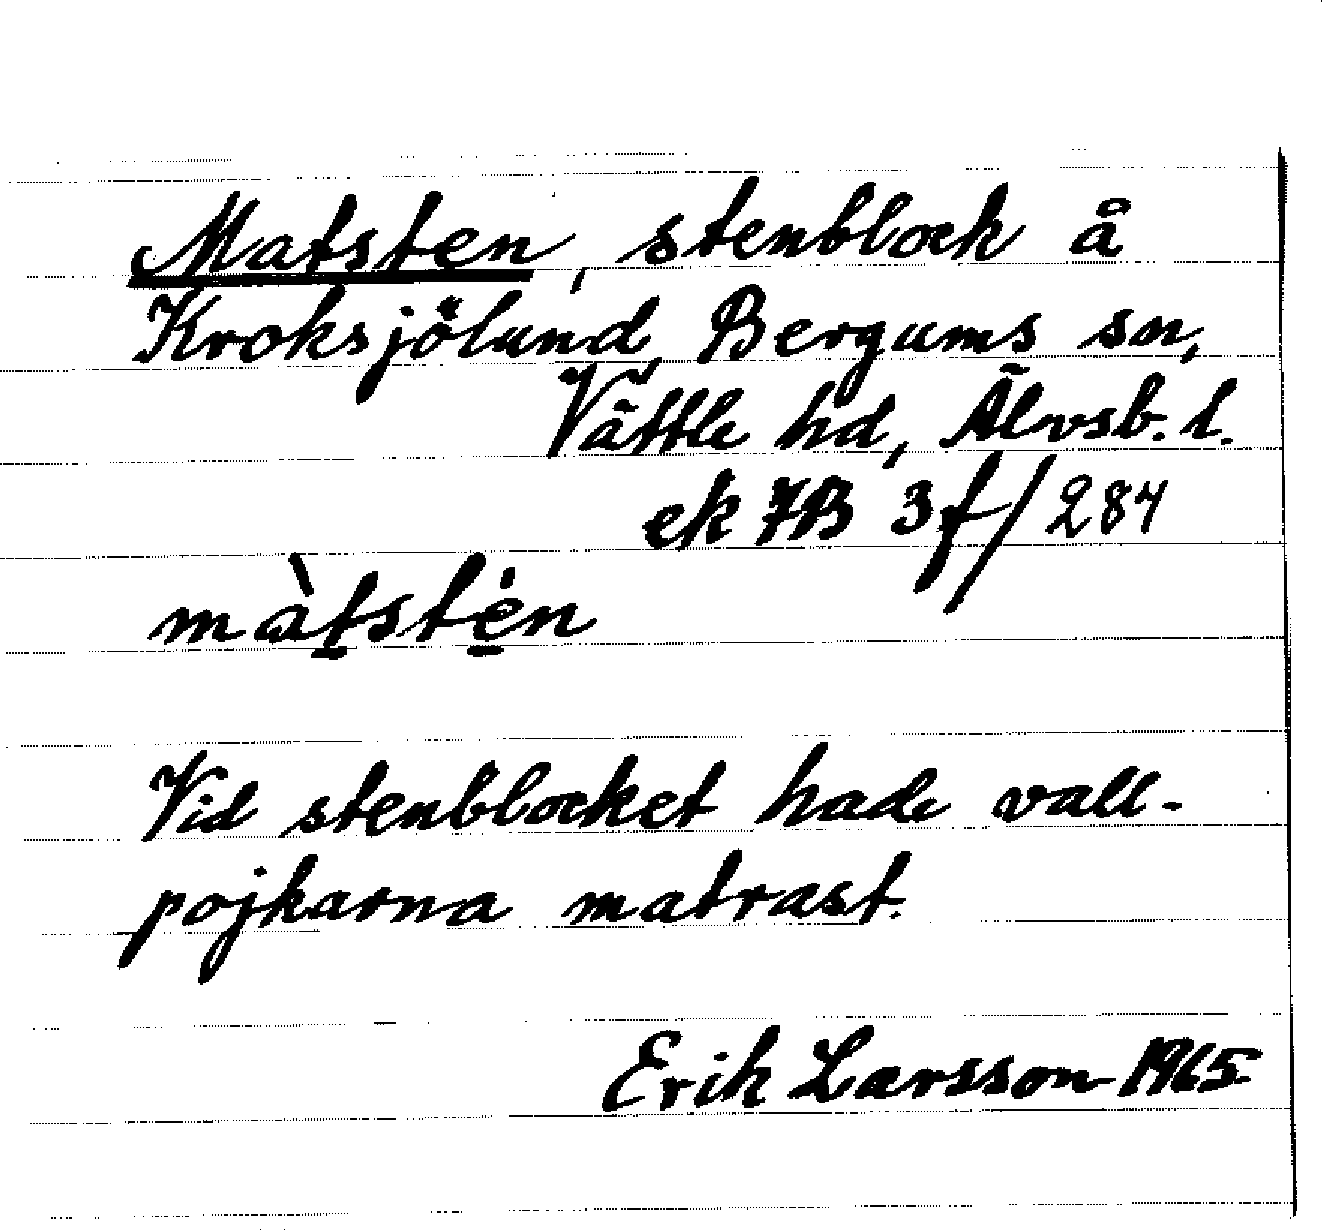 Matsten, stenblock å
Kroksjölund, Bergums sn,
Vättle hd, Älvsb. l.
ek 7B 3f/284
màtstèn
Vid stenblocket hade vall-
pojkarna matrast.
Erik Larsson 1965